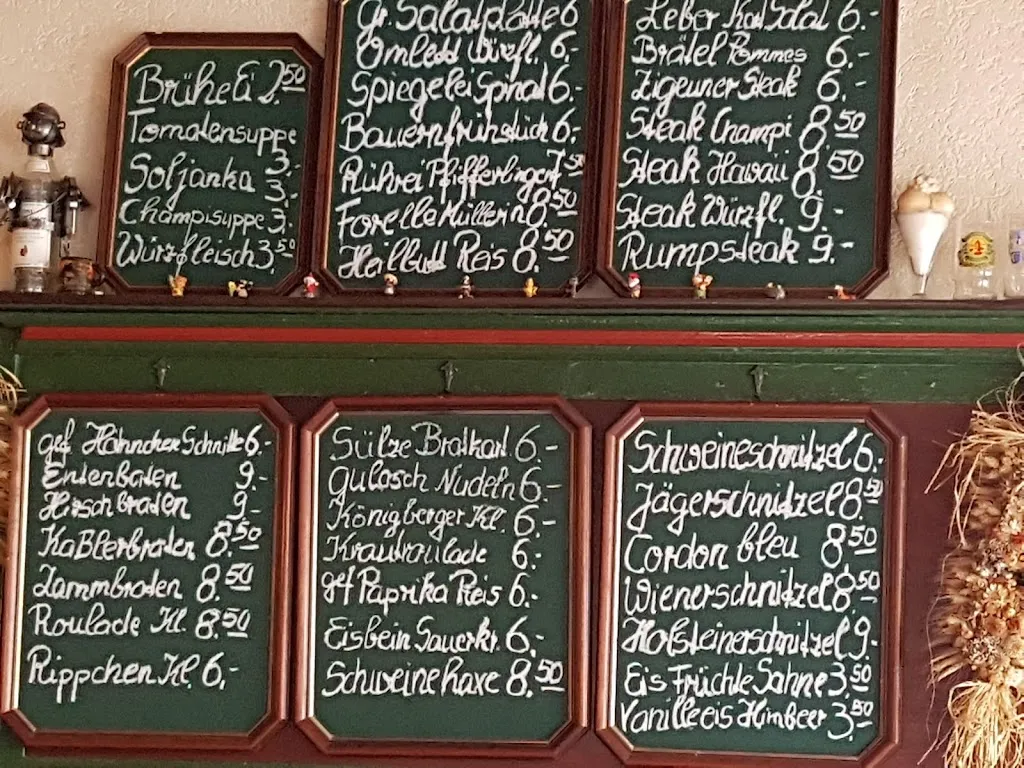 Brühe Ei 2.50
Tomatensuppe
3.-
Soljanka 3.-
Champisuppe 3.-
Würzfleisch 3.50
Gr. Salatplatte 6
Omlett Würzfl. 6.-
Spiegelei Spinat 6.-
Bauernfrühstück 6.-
Rührei Pfifferlinge 7.50
Forelle Müllerin 8.50
Heilbutt Reis 8.50
Leber Kart Salat 6.-
Brätel Pommes 6.-
Zigeuner Steak 6.-
Steak Champi 8.50
Steak Hawaii 8.50
Steak Würzfl. 9.-
Rumpsteak 9.-
gef Hähnchen Schnitte 6.-
Entenbraten 9.-
Hirschbraten 9.-
Kaßlerbraten 8.50
Lammbraten 8.50
Roulade Kl. 8.50
Rippchen Kl. 6.-
Sülze Bratkart 6.-
Gulasch Nudeln 6.-
Königberger Kl. 6.-
Krautroulade 6.-
gef Paprika Reis 6.-
Eisbein Sauerkr. 6.-
Schweinehaxe 8.50
Schweineschnitzel 6.-
Jägerschnitzel 8.50
Cordon bleu 8.50
Wienerschnitzel 8.50
Holsteinerschnitzel 9.-
Eis Früchte Sahne 3.50
Vanilleeis Himbeer 3.50